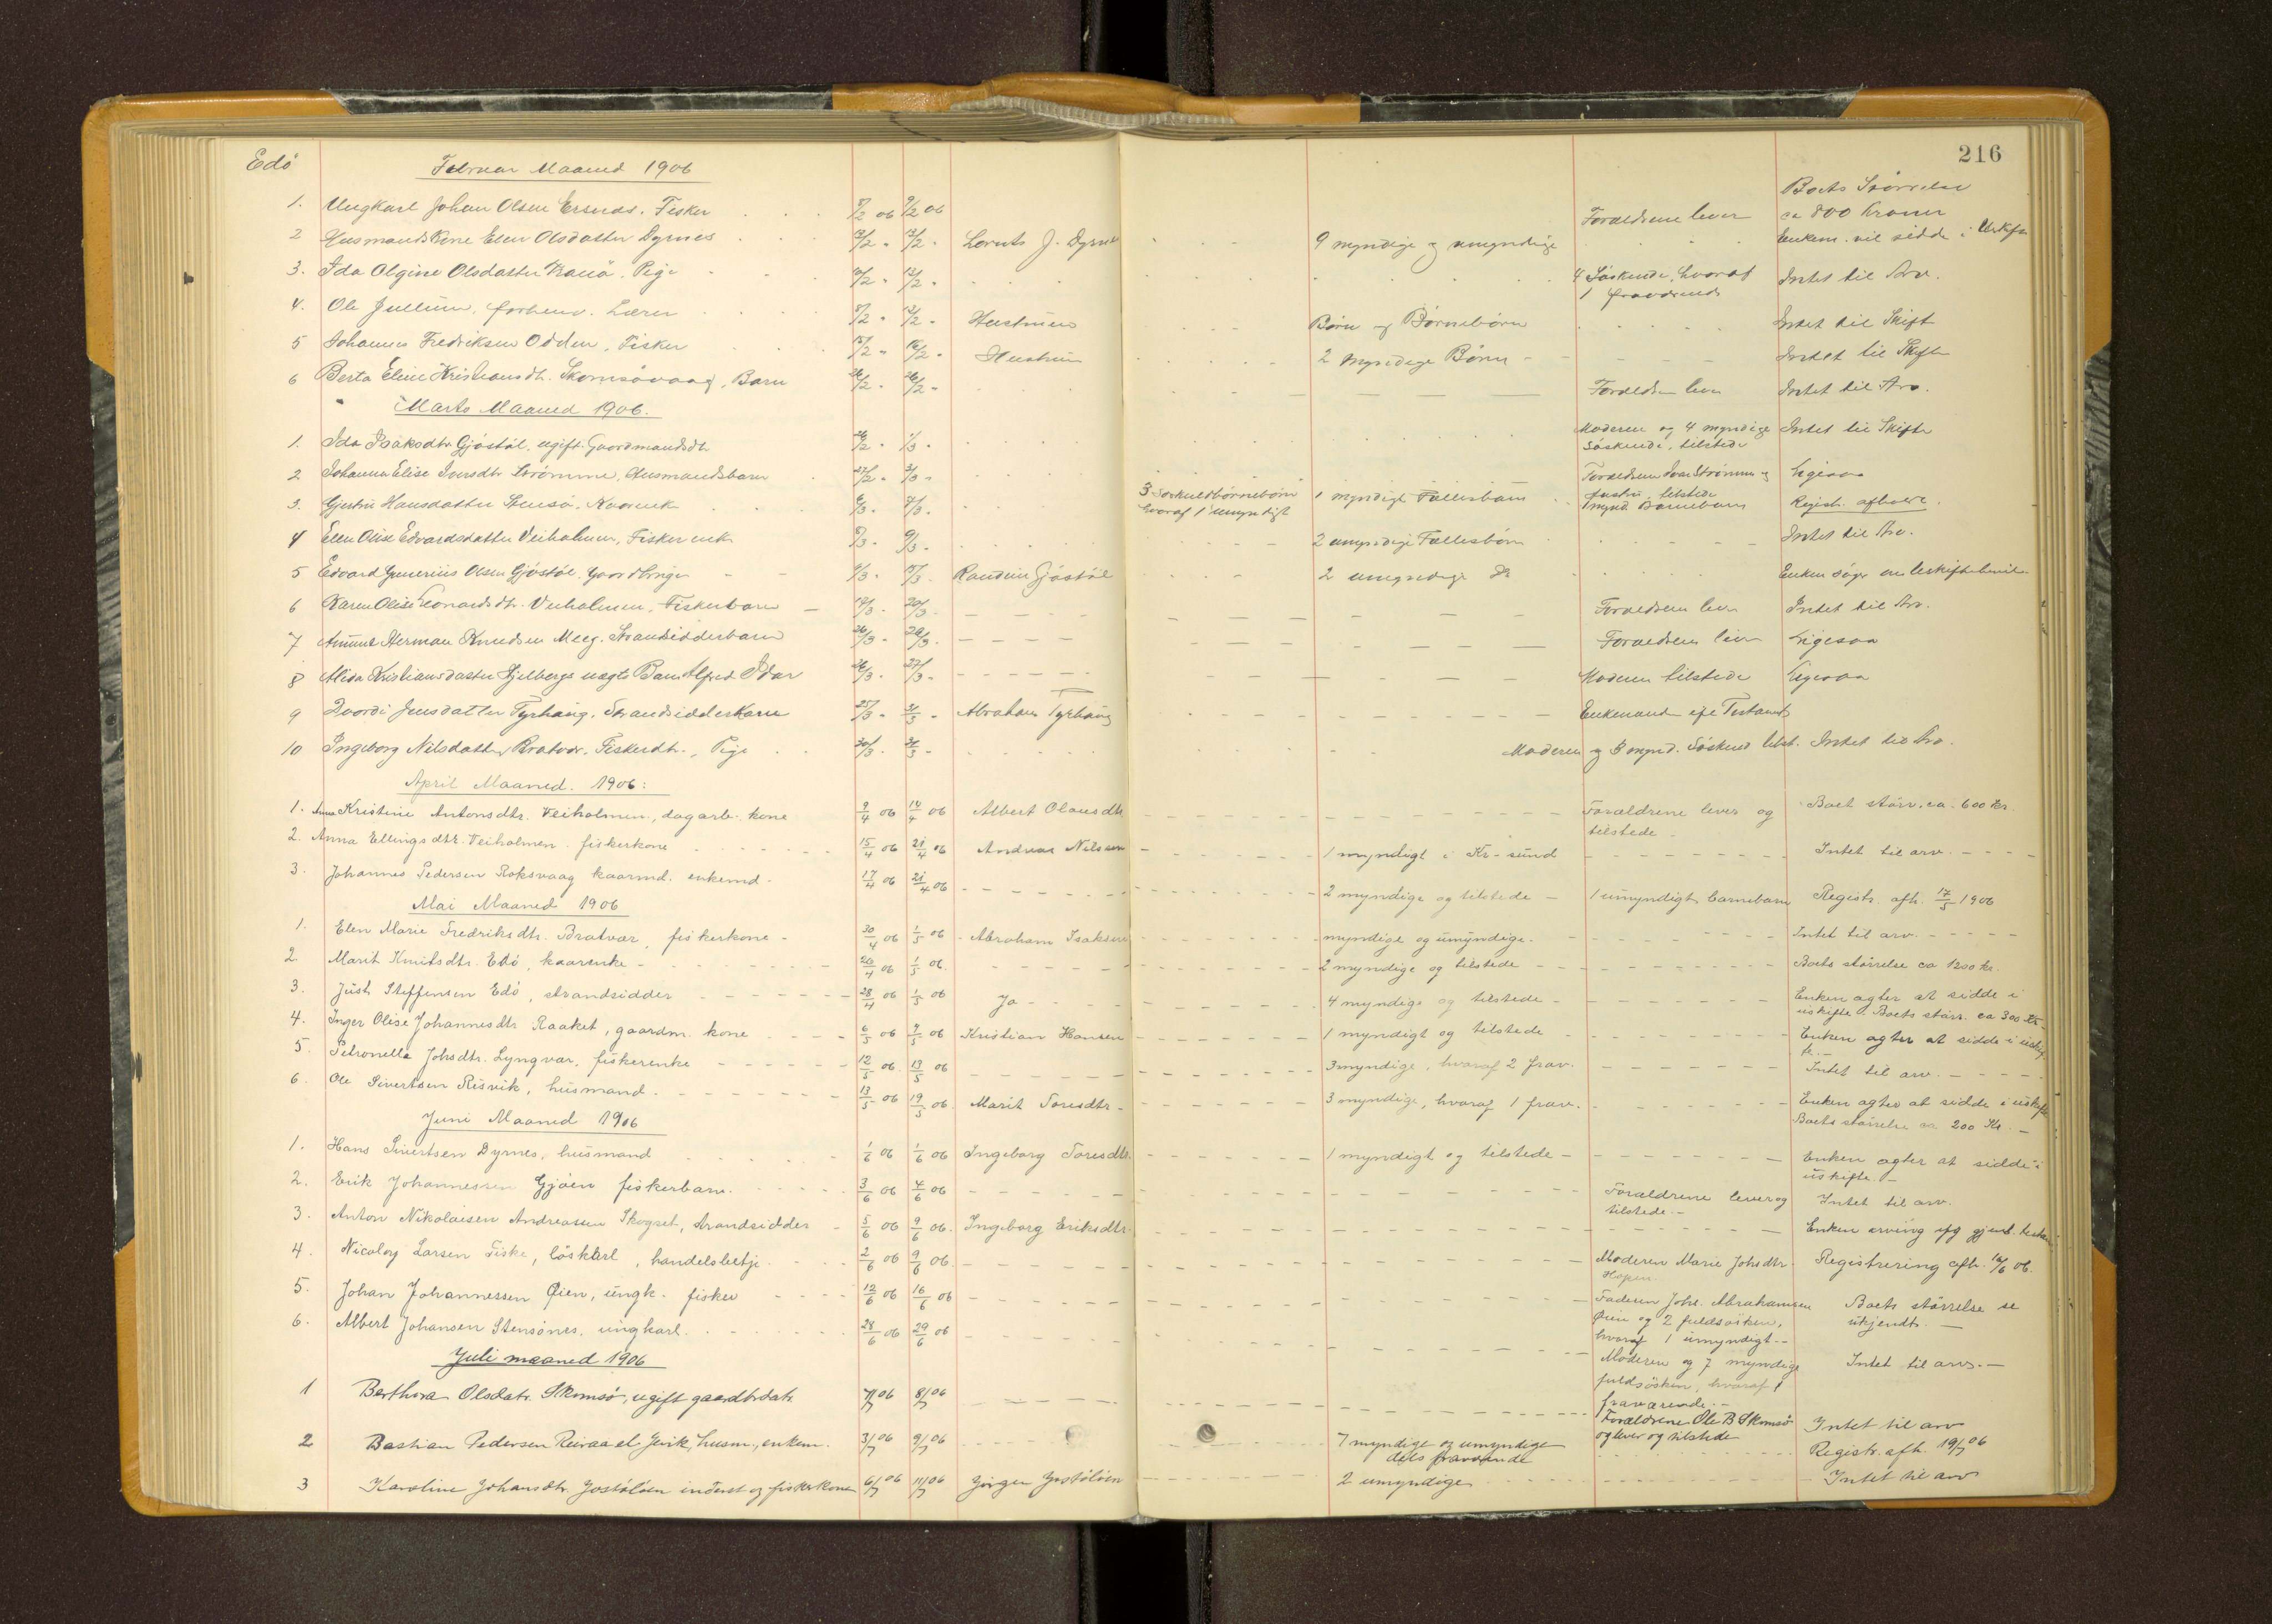 216
Edö
Februar Maaned 1906
Boets Störrelse
1. Ungkarl Johan Olsen Ersnes. Fisker 8/2 06 9/2 06 Forældrene lever ca 800 Kroner
2 Husmandskone Elen Olsdatter Dyrnes 12/2 - 12/2 - Lornts J. Dyrnes 9 myndige og umyndige Enkem. vil sidde i Uskifte
3. Ida Olgine Olsdatter Pige 10/2 - 12/2 - 4 Söskende, hvoraf Intet til Arv.
1 fraværende
4. Ole Jullum, forhenv. Lærer 8/2 - 12/2 - Hustruen Börn og Börnebörn Intet til Skift
5 Johannes Fredriksen Odden, Fisker 15/2 - 16/2 - Hustruen 2 myndige Börn - Intet til Skifte
6 Berta Eline Kristiansdt. Skomsövaag, Barn 26/2 - 26/2 - Forældrene lever Intet til Arv.
Marts Maaned 1906.
1. Ida Isaksdtr Gjöstöl, ugift Gaardmandsdtr 26/2 - 1/3 - Moderen og 4 myndige Intet til Skifte
Söskende, tilstede
2 Johanna Elise Ivarsdtr Strömme, Husmandsbarn 27/2 - 3/3 - Forældrene Ivar Strömme og Ligesaa
hustru, tilstede
3. Gjertru Hansdatter Stensö. Kaarenk 6/3 - 7/3 - 3 Særkuldbörnebörn 1 myndigt Fællesbarn 1 mynd. Barnebarn Registr. afholdt.
hvoraf 1 umyndigt
4 Elen Olise Edvardsdatter Veiholmen, Fisker enke 8/3 - 9/3 - 2 umyndige Fællesbörn Intet til Arv.
5 Edvard Gunerius Olsen Gjöstöl. Gaardbruger 9/3 - 15/3 - Randine Gjöstöl 2 umyndige Do Enken söger om Uskiftebevil.
6 Karen Olise Leonardsdt. Veiholmen, Fiskerbarn 17/3 - 20/3 - Forældrene lever Intet til Arv.
7 Herman Knudsen Meeg. Strandsidderbarn 26/3 - 29/3 - Forældrene lever Ligesaa
8 Alida Kristiansdatter Hjelbergs uægte Barn Alfred Idar 26/3 - 27/3 - Moderen tilstede Ligesaa
9 Jensdatter Tyrhaug. Strandsidderkone 25/3 - 31/3 - Abraham Tyrhaug Enkemanden efter Testament
10 Ingeborg Nilsdatter Bratvær. Fiskerdt., Pige 30/3 - 31/3 - Moderen og 3 mynd. Söskend tilst. Intet til Arv.
April Maaned. 1906:
1. Anna Kristine Antonsdtr. Veiholmen, dagarb. kone 9/4 06 14/4 06 Albert Olausdtr Forældrene lever og Boet störr. ca. 600 kr.
tilstede -
2. Anna Ellingsdtr. Veiholmen. fiskerkone 15/4 06 21/4 06 Andreas Nilssen 1 myndigt i Kr-sund Intet til arv.
3. Johannes Pedersen Roksvaag kaarmd. enkemd. 17/4 06 21/4 06 2 myndige og tilstede - 1 umyndigt barnebarn Registr. afh. 17/5 1906
Mai Maaned 1906
1. Elen Marie Fredriksdtr. Bratvær, fiskerkone - 30/4 06 1/5 06 - Abraham Isaksen myndige og umyndige. Intet til arv.
2. Marit Knutsdtr. Edö, kaarenke - 26/4 06 1/5 06. 2 myndige og tilstede Boets störrelse ca 1200 kr.
3. Just Steffensen Edö, strandsidder 28/4 06 1/5 06 Ja - 4 myndige og tilstede - Enken agter at sidde i
uskifte. Boets störr. ca 300 Kr
4. Inger Olise Johannesdtr Raaket, gaardm. kone 6/5 06 7/5 06 Kristian Hansen 1 myndigt og tilstede Enken agter at sidde i uskif-
te. -
5. Petronelle Johsdtr. Lyngvær, fiskerenke 12/5 06. 13/5 06 3 myndige, hvoraf 2 frav. Intet til arv.
6. Ole Sivertsen Risvik, husmand. 13/5 06 19/5 06. Marit Toresdtr - 3 myndige, hvoraf 1 frav. Enken agter at sidde i uskifte
Boets störrelse ca 200 Kr. -
Juni Maaned 1906
1. Hans Sivertsen Dyrnes, husmand 1/6 06 1/6 06 Ingeborg Toresdtr. 1 myndigt og tilstede - Enken agter at sidde i
uskifte. -
2. Erik Johannessen Gjöen fiskerbarn. 3/6 06 4/6 06 Forældrene lever og Intet til arv.
tilstede. -
3. Anton Nikolaisen Andreassen Skogset, strandsidder - 5/6 06 9/6 06. Ingeborg Eriksdtr. Enken arving efg gjens. testam
4. Nicolay Larsen Fiske, löskarl, handelsbetje. 2/6 06 9/6 06. Moderen Marie Johsdtr. Registrering afh. 16/6 06.
Hopen
5. Johan Johannessen Øien, ungk. fisker 12/6 06 16/6 06 Faderen Johs. Abrahamsen Boets störrelse se
Øien og 2 fuldsösken, ukjendt. -
hvoraf 1 umyndigt -
6. Albert Johansen Stensönes, ungkarl. 28/6 06 29/6 06 Moderen og 7 myndige Intet til arv. -
fuldsösken, hvoraf 1
fraværende. -
Juli maaned 1906
1 Berthora Olsdatr. Skomsö, ugift gaardbrdatr. 7/7 06 8/7 06 Forældrene Ole B Skomsö Intet til arv
og lever og tilstede
2 Bastian Pedersen Reiraa el. Jevik, husm., enkem. 3/7 06 9/7 06 7 myndige og umyndige Registr. afh. 19/7 06
dels fraværende
3 Karoline Johansdtr. Jostölöien inderst og fiskerkone 6/7 06 11/7 06 Jörgen Jostölöien 2 umyndige Intet til arv